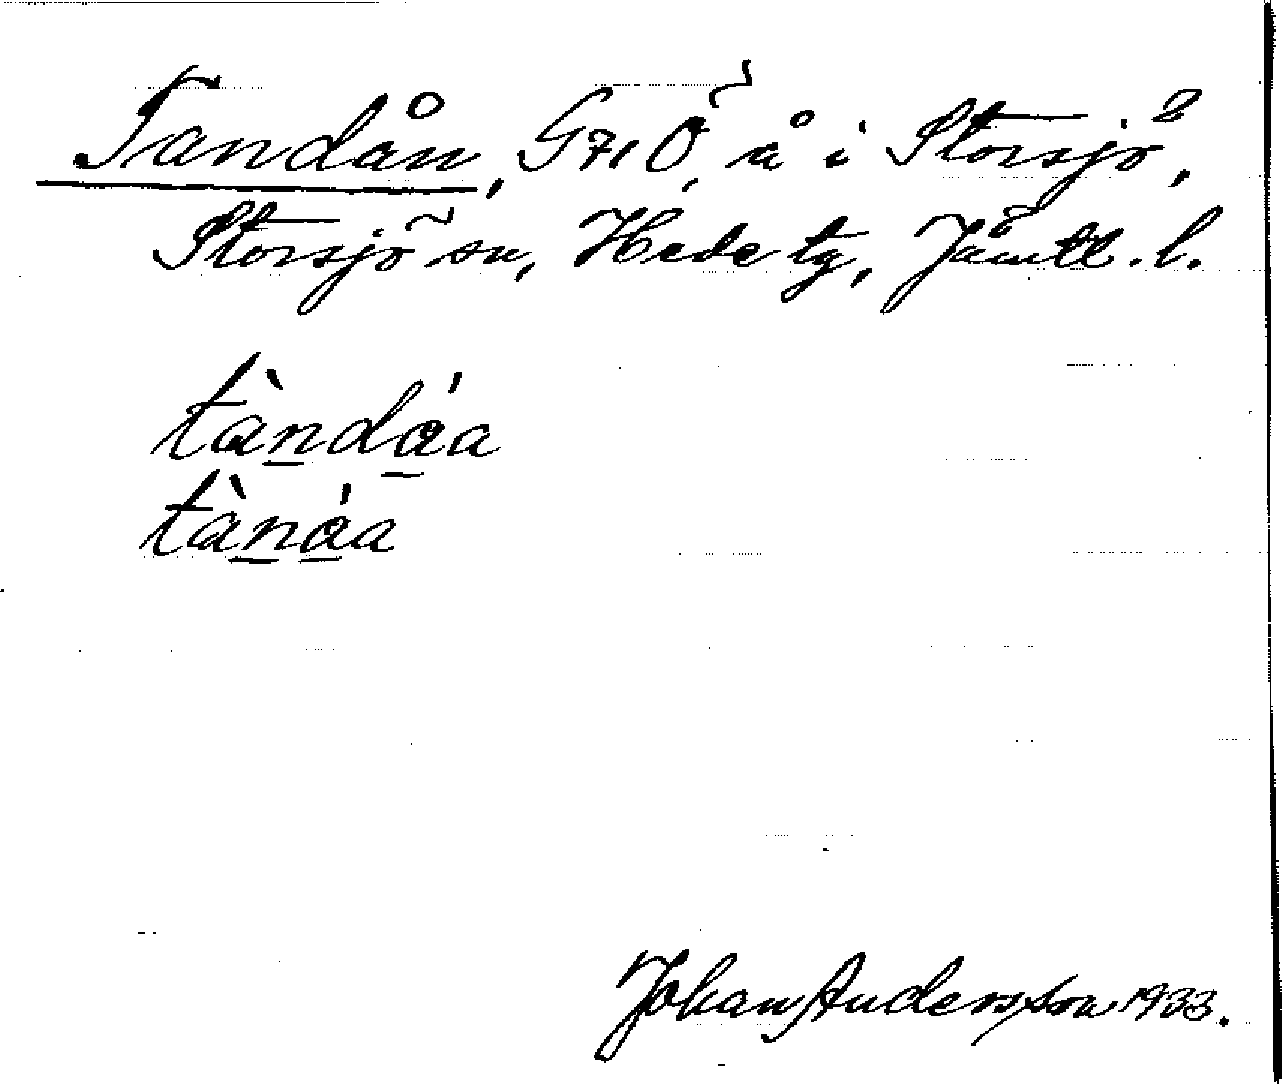 Tandån, G71Ö, å i Storsjö,
Storsjö sn, Hede tg, Jämtl. l.
tànda̍a
tàna̍a
Johan Andersson 1933.